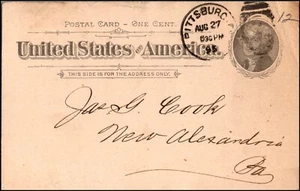 POSTAL CARD - ONE CENT.
United States of America.
THIS SIDE IS FOR THE ADDRESS ONLY.
PITTSBURG
AUG 27
12
Jas. G. Cook
New Alexandria
Pa